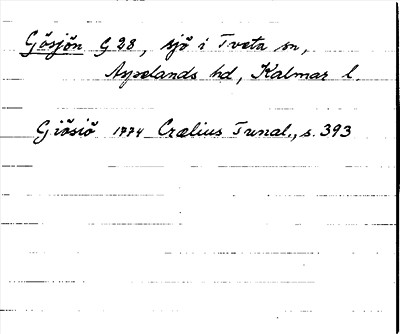 Gösjön G 28, sjö i Tveta sn,
Aspelands hd, Kalmar l.
Giösiö 1774 Crælius Tunal., s. 393